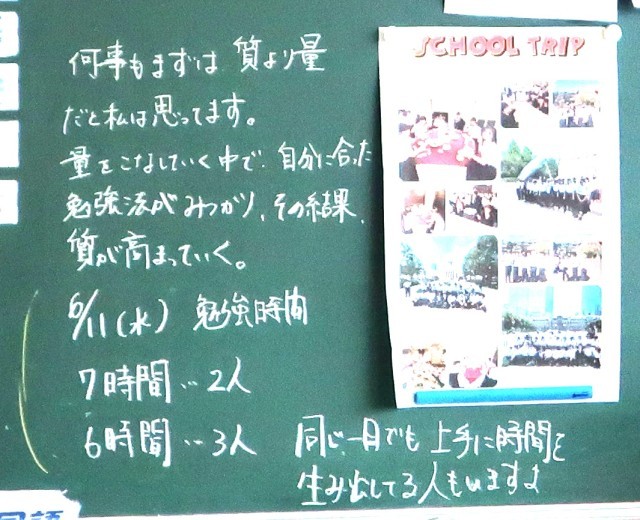 何事もまずは 質より量
だと私は思ってます。
量をこなしていく中で、自分に合った
勉強法がみつかり、その結果、
質が高まっていく。
6/11(水) 勉強時間
7時間…2人
6時間…3人
同じ一日でも 上手に時間を
生み出してる人もいますよ
SCHOOL TRIP
国語